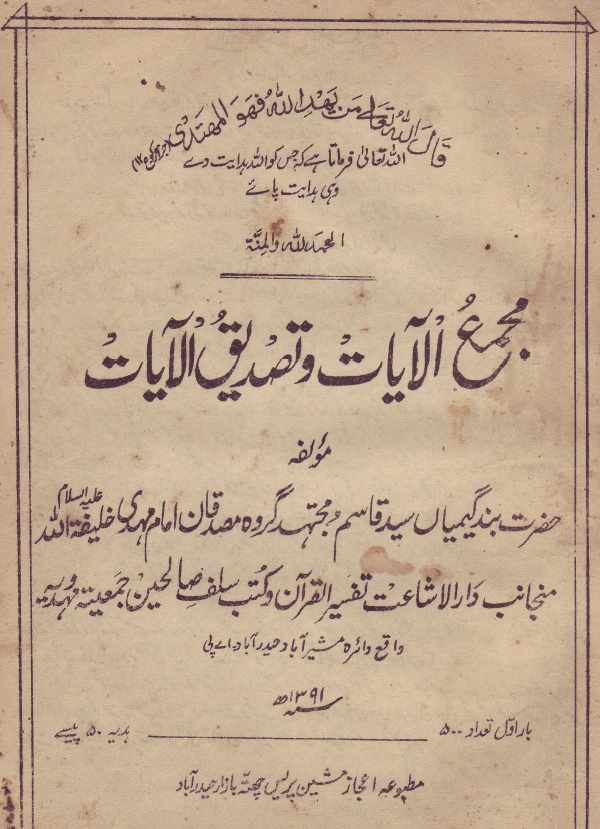 قَالَ اللهُ تَعَالٰی مَن یَّھْدِ اللهُ فَهُوَ الْمُهْتَدِیْ
اللہ تعالیٰ فرماتا ہے کہ جس کو اللہ ہدایت دے
وہی ہدایت پائے
الحمدللہ والمِنَّة
مجمعُ الْآیاتْ وتصْدیقُ الْآیاتْ
مؤلفہ
حضرت بندگیمیاں سید قاسم مجتہد گروہ مصدقان امام مہدی خلیفۃ اللہ علیہ السلام
منجانب دَارالاشاعت تفسیر القرآن وکتب سلف صالحین جمعیتہ مہدویہ
واقع دائرہ مشیرآباد حیدرآباد۔اے پی
سنہ ۱۳۹۱ھ
بار اوّل تعداد ۵۰۰ ہدیہ ۵۰ پیسے
مطبوعہ اعجاز مشین پریس چھتہ بازار حیدرآباد